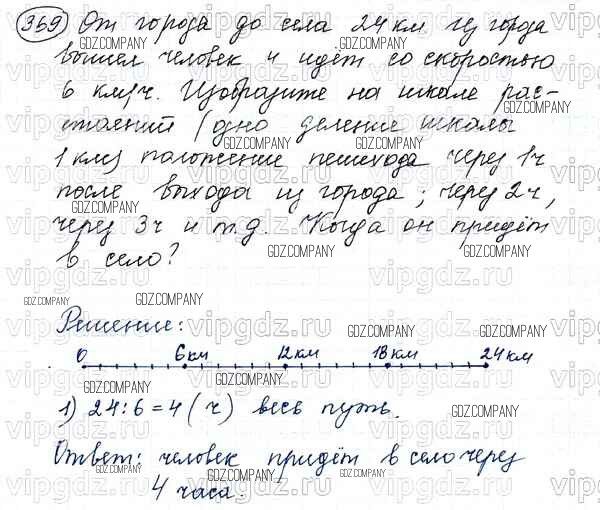 369 От города до села 24 км из города
вышел человек и идёт со скоростью
6 км/ч. Изобразите на шкале рас-
стояний (одно деление шкалы
1 км) положение пешехода через 1ч
после выхода из города; через 2ч,
через 3ч и т.д. Когда он придёт
в село?
Решение:
0 6км 12км 18км 24км
1) 24:6=4 (ч) весь путь.
Ответ: человек придёт в село через
4 часа.